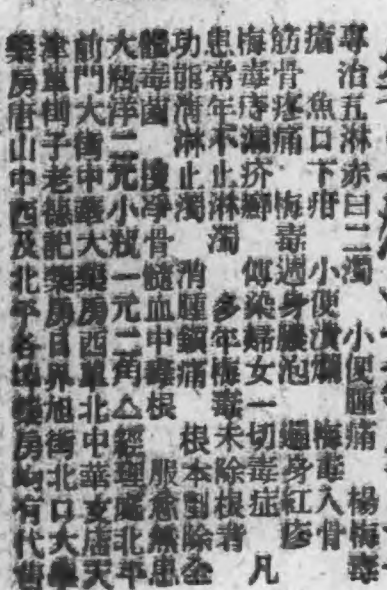 專治五淋赤白二濁　小便腫痛　楊梅毒
瘡　魚口下疳　小便潰爛　梅毒入骨
筋骨疼痛　梅毒週身膿泡　遍身紅疹
梅毒痔漏疥癬　傳染婦女一切毒症　凡
患常年不止淋濁　多年梅毒未除根者
功能清淋止濁　消腫鎮痛　根本剷除全
體毒菌　搜淨骨髓血中毒根　服愈無患
大瓶洋二元小瓶一元二角△經理處北平
前門大街中華大藥房西單北中華女店天
津單街子老德記藥房日界旭街北口大學
藥房唐山中西及北平各藥房均有代售